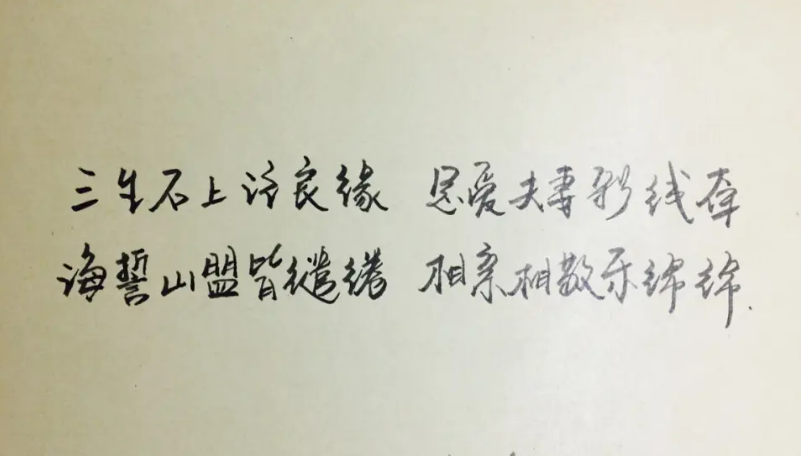 三生石上注良缘 恩爱夫妻彩线牵
海誓山盟皆缱绻 相亲相敬乐绵绵